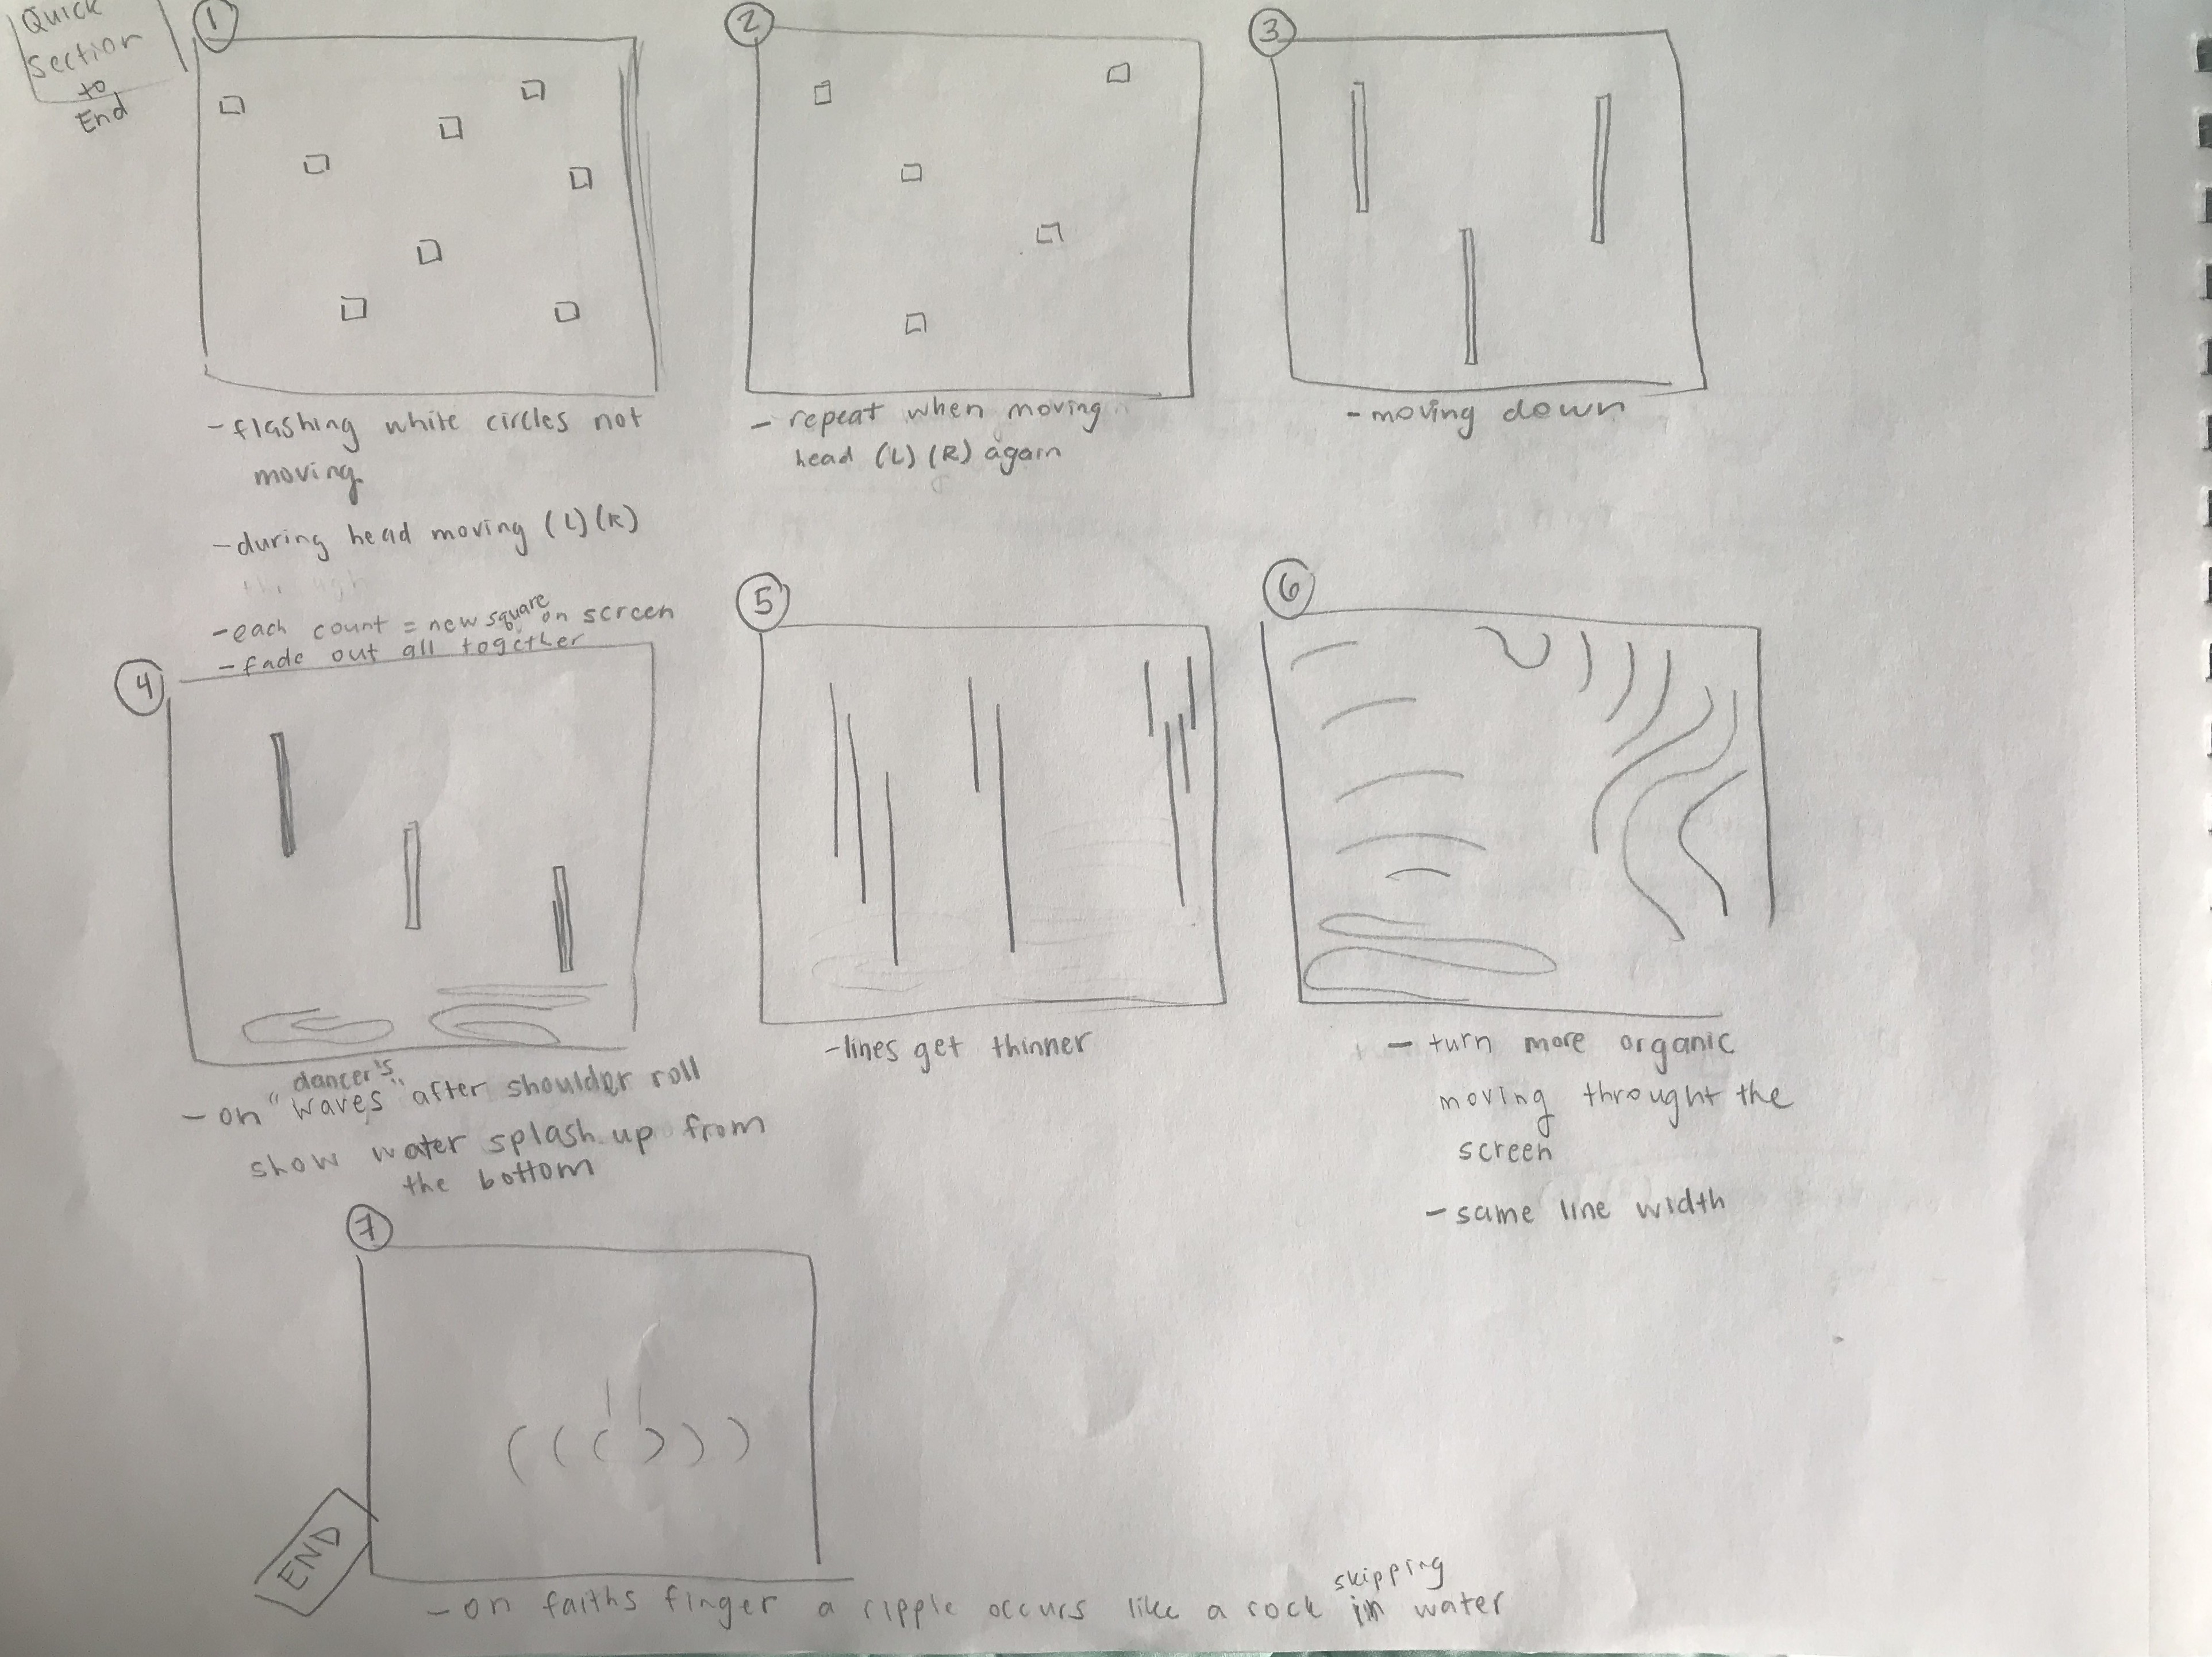 Quick
Section
to
End
1
- flashing white circles not
moving
- during head moving (L)(R)
- each count = new square on screen
- fade out all together
2
- repeat when moving
head (L)(R) again
3
- moving down
4
- on dancer's "waves" after shoulder roll
show water splash up from
the bottom
5
- lines get thinner
6
- turn more organic
moving throught the
screen
- same line width
7
END
- on faiths finger a ripple occurs like a rock skipping in water